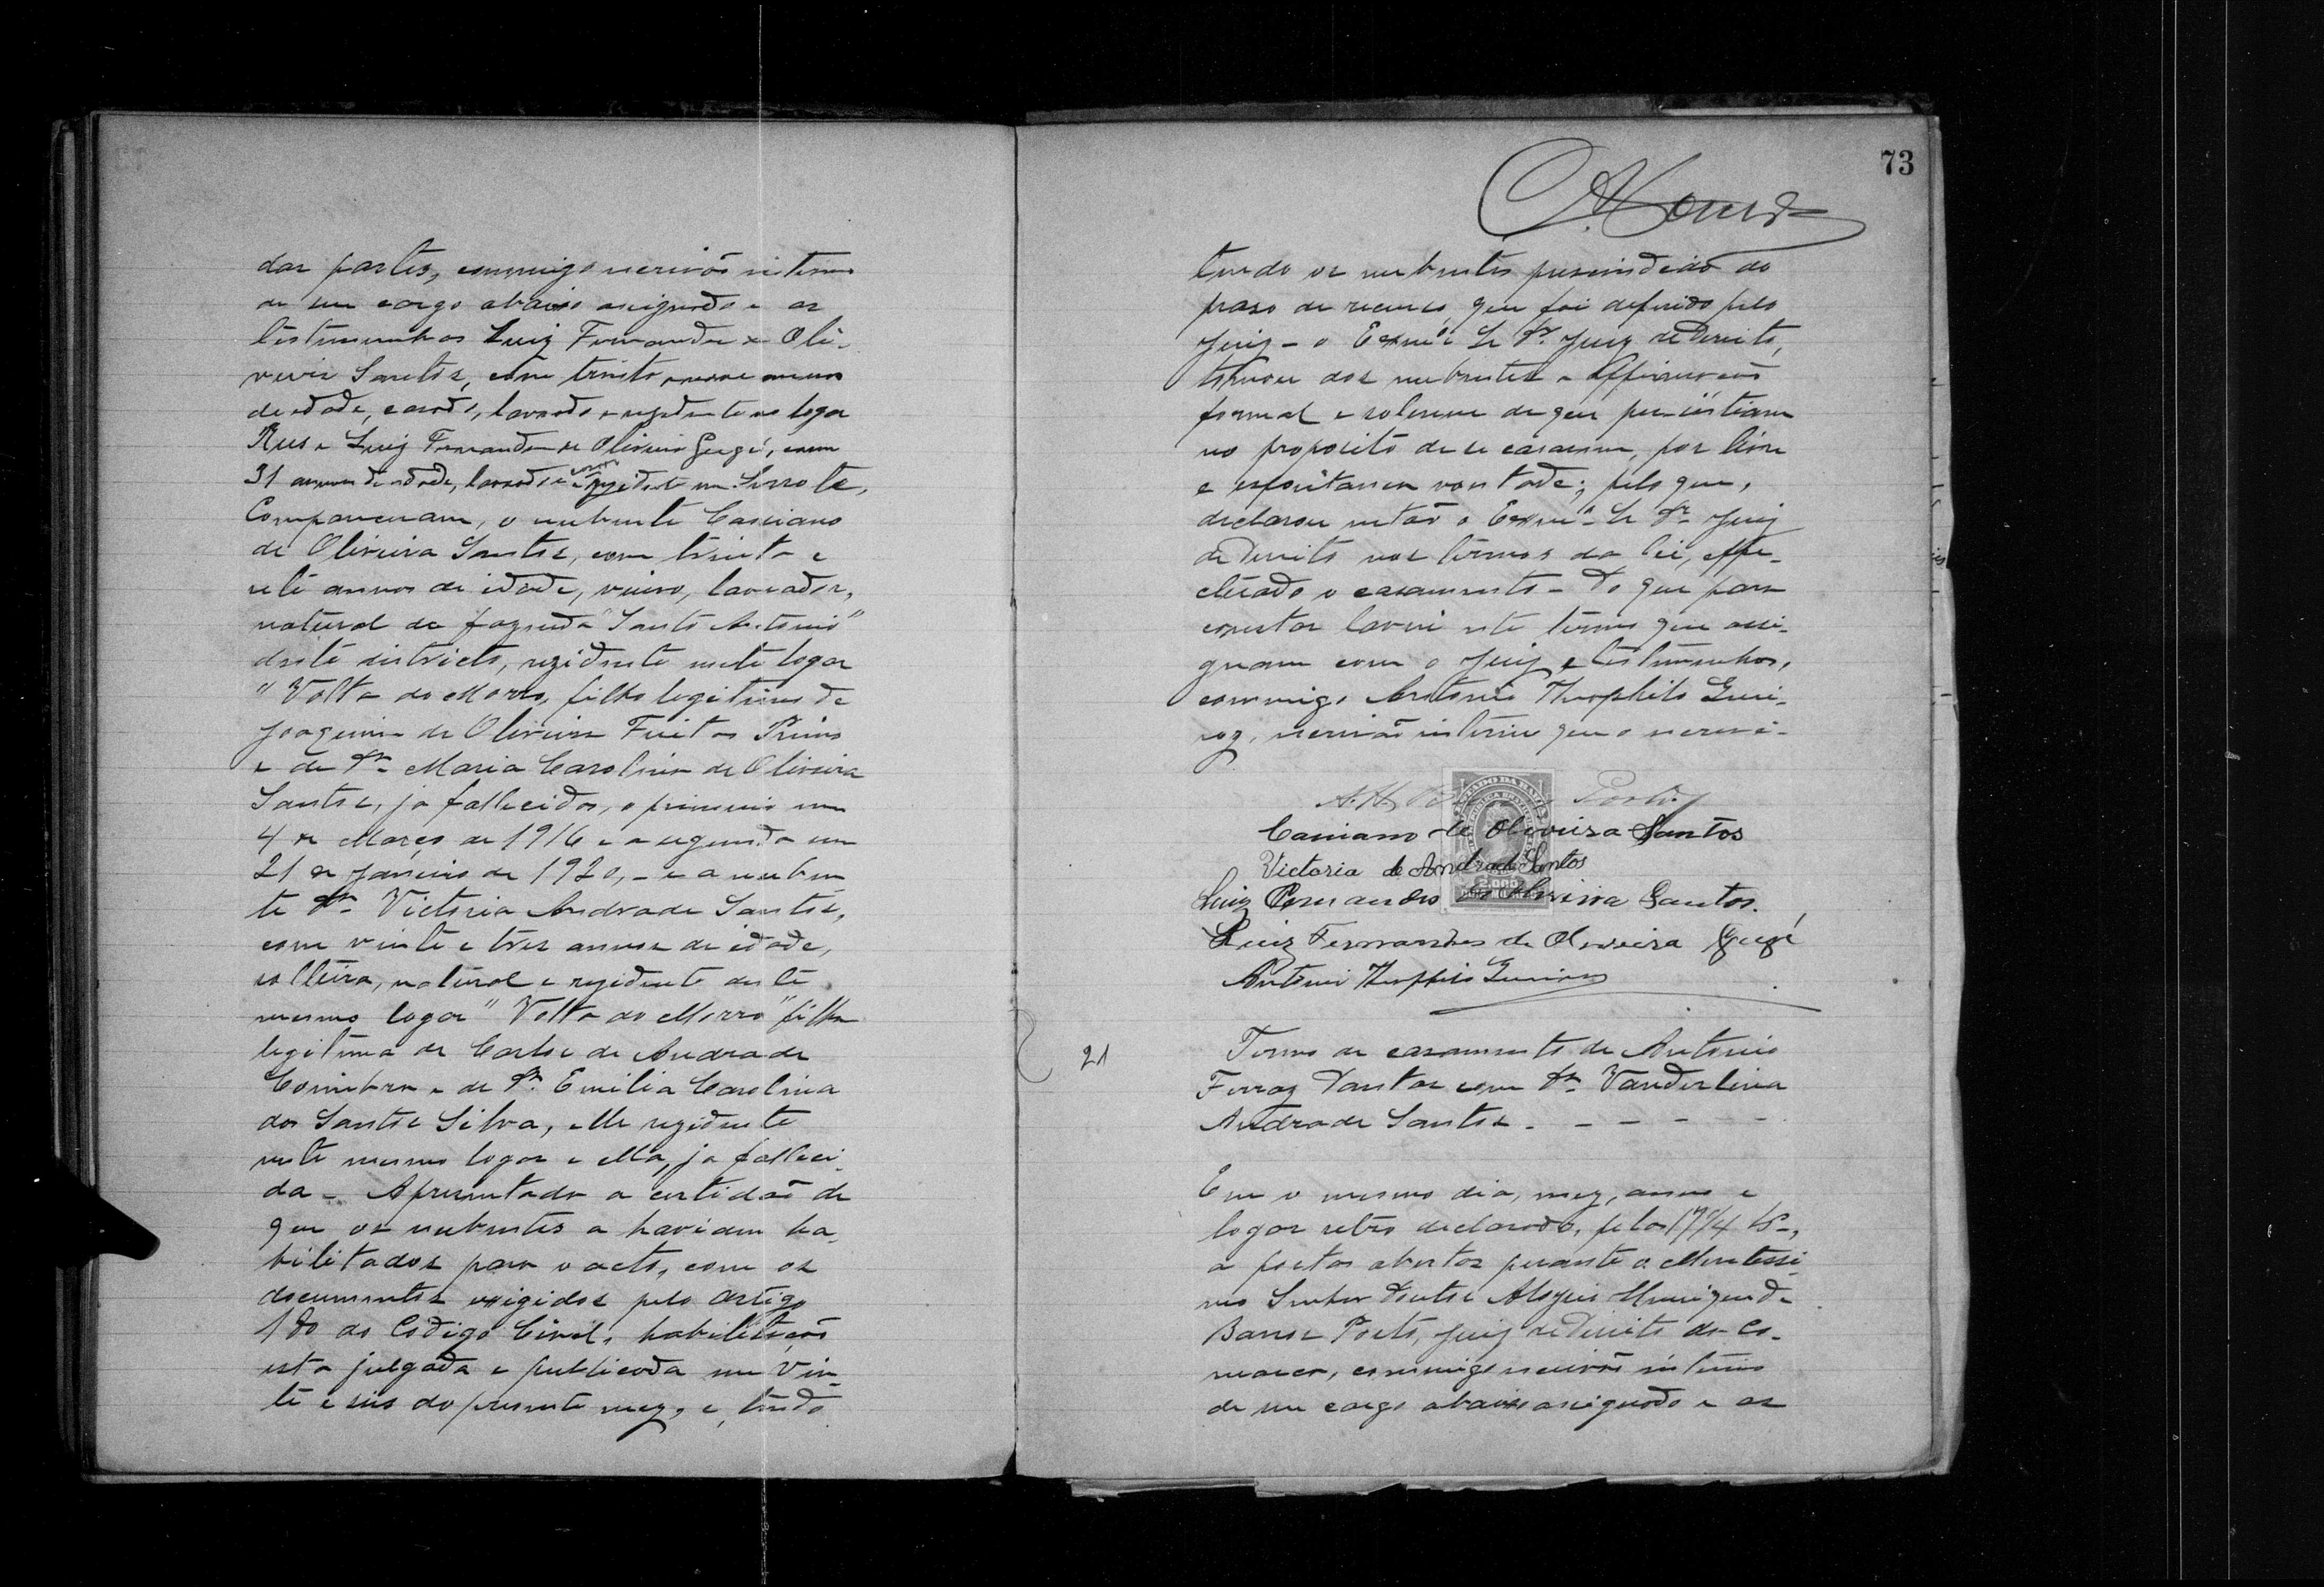 das partes, commigo escrivão interino
de seu cargo abaixo assignado e as
testemunhas Luiz Fernandes de Oli-
veira Santos, com trinta annos
de edade, casado, lavrador e residente no logar
e Luiz Fernandes de Oliveira Gugé, com
31 annos de edade, lavrador e residente em Serrote,
Compareceram, o nubente Cassiano
de Oliveira Santos, com trinta e
sete annos de idade, viuvo, lavrador,
natural da fazenda "Santo Antonio"
deste districto, rezidente neste logar
"Volta do Morro, filho legitimo de
Joaquim de Oliveira Freitas Primo
e de Dª Maria Carolina de Oliveira
Santos, ja fallecidos, o primeiro em
4 de Março de 1916 e a segunda em
21 de Janeiro de 1920, - e a nuben
te Dª Victoria Andrade Santos,
com vinte e tres annos de idade,
solteira, natural e rezidente deste
mesmo logar "Volta do Morro" filha
legitima de Carlos de Andrade
Coimbra e de Dª Emilia Carolina
dos Santos Silva, elle rezidente
neste mesmo logar e ella, ja falleci-
da - Apresentada a certidão de
que os nubentes a haviam ha-
bilitados para o acto, com os
documentos exigidos pelo artigo
180 do Codigo Civil, habilitação
esta julgada e publicada em vin-
te e seis do presente mez, e, tendo
73
tendo os nubentes prescindido do
praso de recurso, que foi deferido pelo
Juiz - o Exmº Sr Dr Juiz de Direito,
tomou dos nubentes a affirmação
formal e solemne de que persistiam
no proposito de se casarem, por livre
e espontanea vontade; pelo que,
declarou então o Exmº Sr Dr Juiz
de Direito nos termos da lei, effe-
ctuado o casamento - Do que para
constar lavrei este termo que assi-
gnam com o Juiz e testemunhas,
commigo Antonio Theophilo Guei-
roz, escrivão interino que o escrevi -
ESTADO DA BAHIA
2.000
Cassiano de Oliveira Santos
Victoria de Andrade Santos
Luiz Fernandes de Oliveira Santos.
Luiz Fernandes de Oliveira Gugé
Antonio Theophilo Gueiroz
21
Termo de casamento de Antonio
Ferraz Dantas com Dª Vanderlina
Andrade Santos - - - -
Em o mesmo dia, mez, anno e
logar retro declarado, pelas 17 1/4 hs,
a portas abertas perante o Meretissi-
mo Senhor Doutor Aloysio Henrique de
Barros Porto, Juiz de Direito da Co-
marca, commigo escrivão interino
de seu cargo abaixo assignado e as